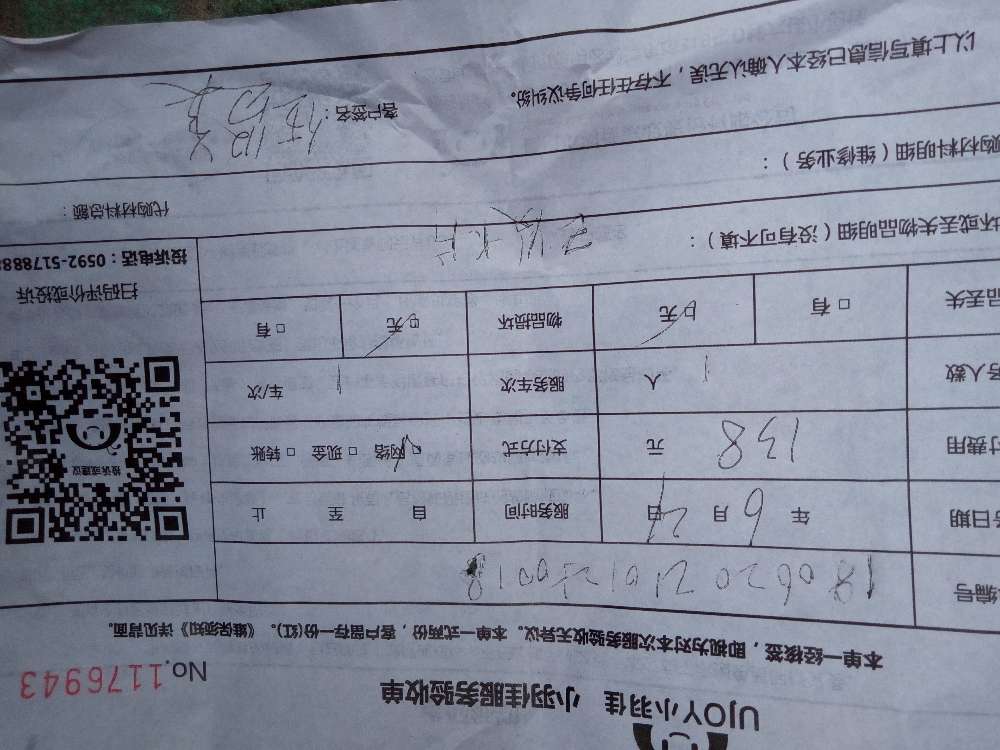 UJOY小羽佳 小羽佳服务验收单
No.1176943
本单一经核签，即视为对本次服务验收无异议。本单一式两份，客户留存一份(红)。《维保须知》详见背面。
编号
日期 年 6 月 21 日 服务时间 自 至 止
费用 138 元 支付方式 □网络 □现金 □转账
人数 1 人 服务车次 1 车/次
品丢失 □有 □无 物品损坏 □无 □有
投诉或建议
扫码评价或投诉
投诉电话：0592-5178888
坏或丢失物品明细（没有可不填）：
购材料明细（维修业务）： 代购材料总额：
以上填写信息已经本人确认无误，不存在任何争议纠纷。 客户签名：